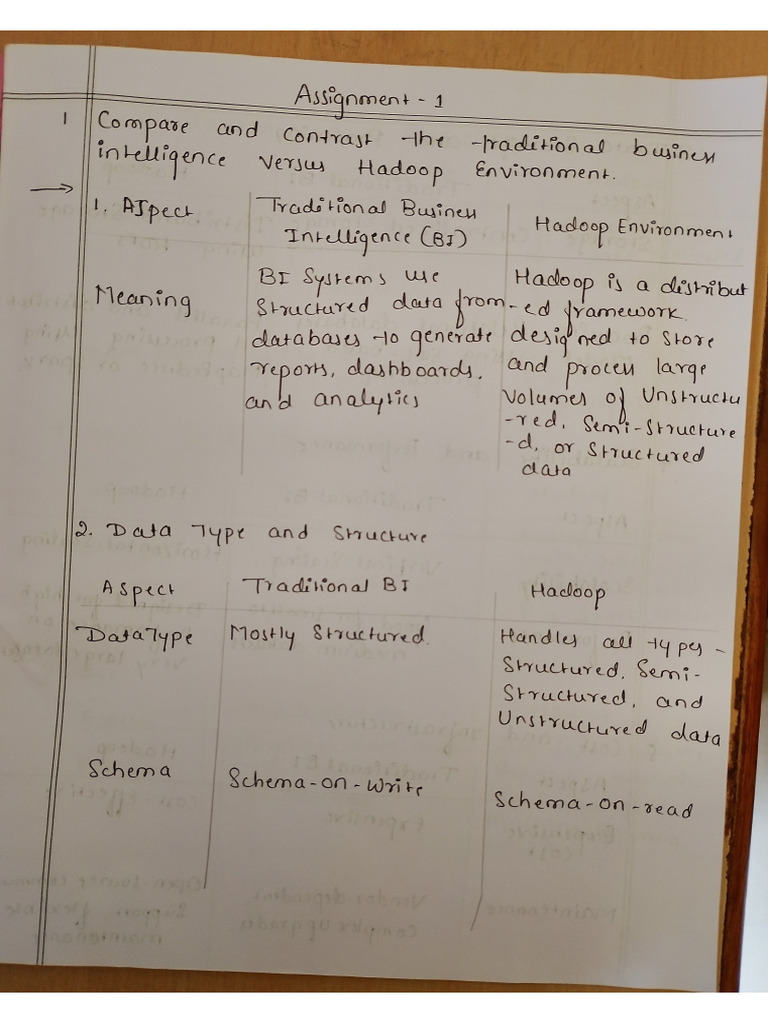 Assignment - 1
1 Compare and contrast the traditional business
intelligence versus Hadoop Environment.
→
1. Aspect
Traditional Business
Intelligence (BI)
Hadoop Environment
Meaning
BI Systems use
Structured data from
databases to generate
reports, dashboards,
and analytics
Hadoop is a distribut
-ed framework
designed to store
and process large
volumes of Unstructu
-red, Semi-Structure
-d, or Structured
data
2. Data Type and Structure
Aspect
Traditional BI
Hadoop
DataType
Mostly Structured.
Handles all types -
Structured, Semi-
Structured, and
Unstructured data
Schema
Schema-on-write
Schema-on-read